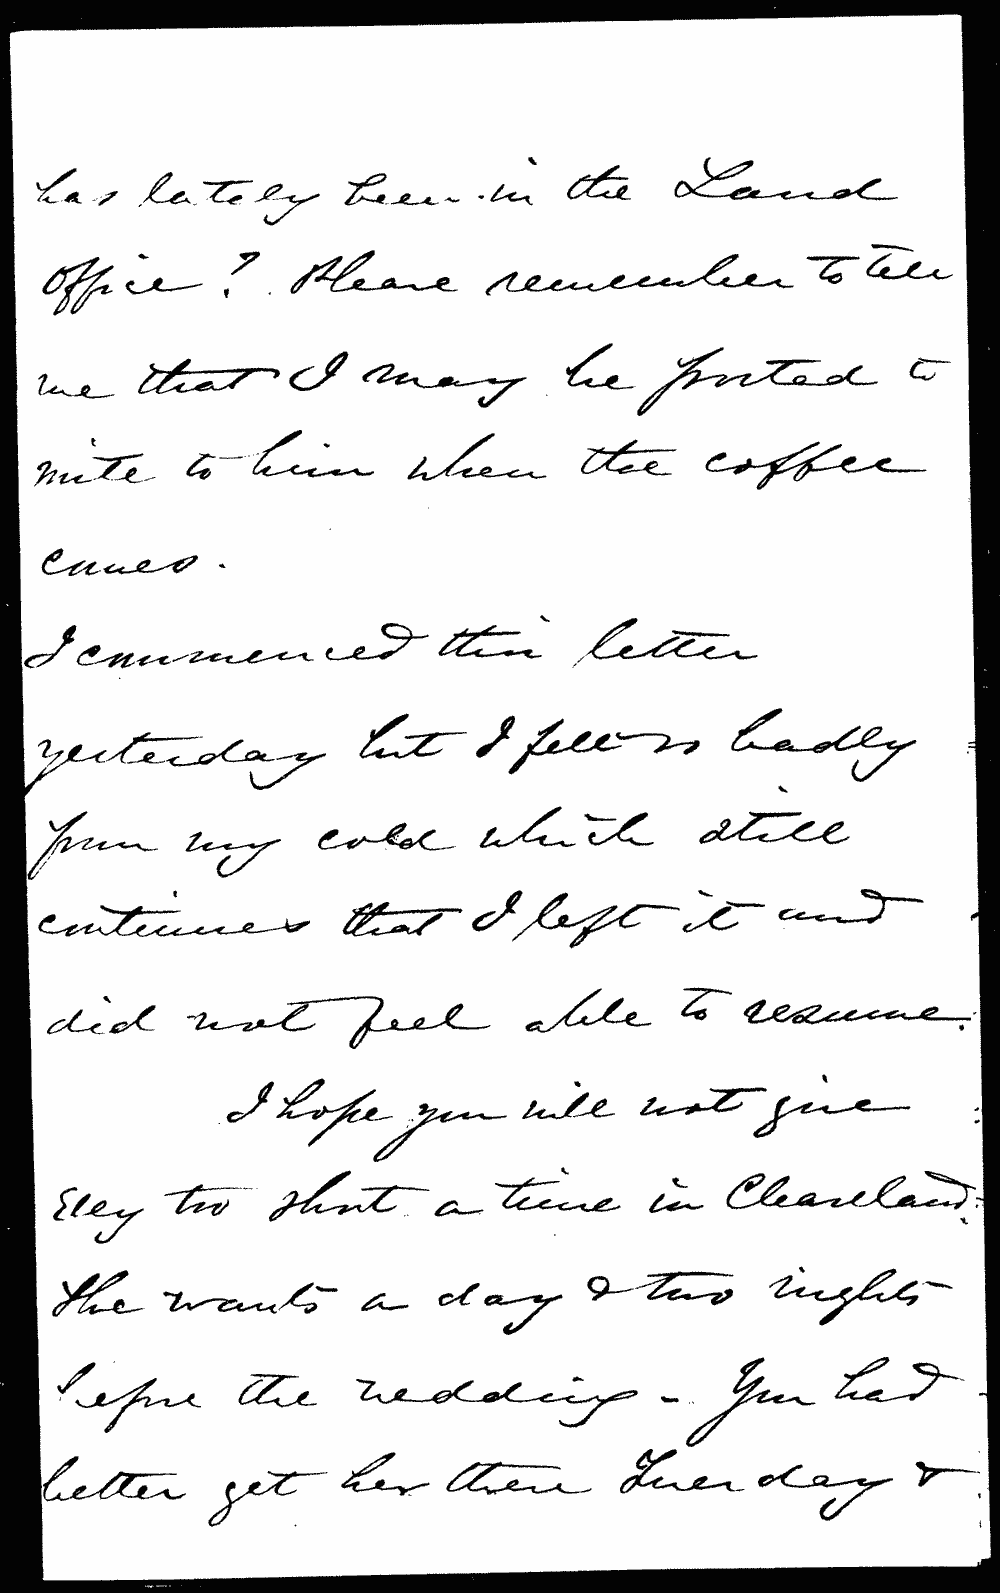 has lately been in the Land
Office? Please remember to tell
me that I may be posted to
write to him when the coffee
comes.
I commenced this letter
yesterday but I felt so badly
from my cold which still
continues that I left it and
did not feel able to resume.
I hope you will not give
too short a time in Cleaveland.
She wants a day & two nights
before the wedding - You had
better get her there Tuesday &